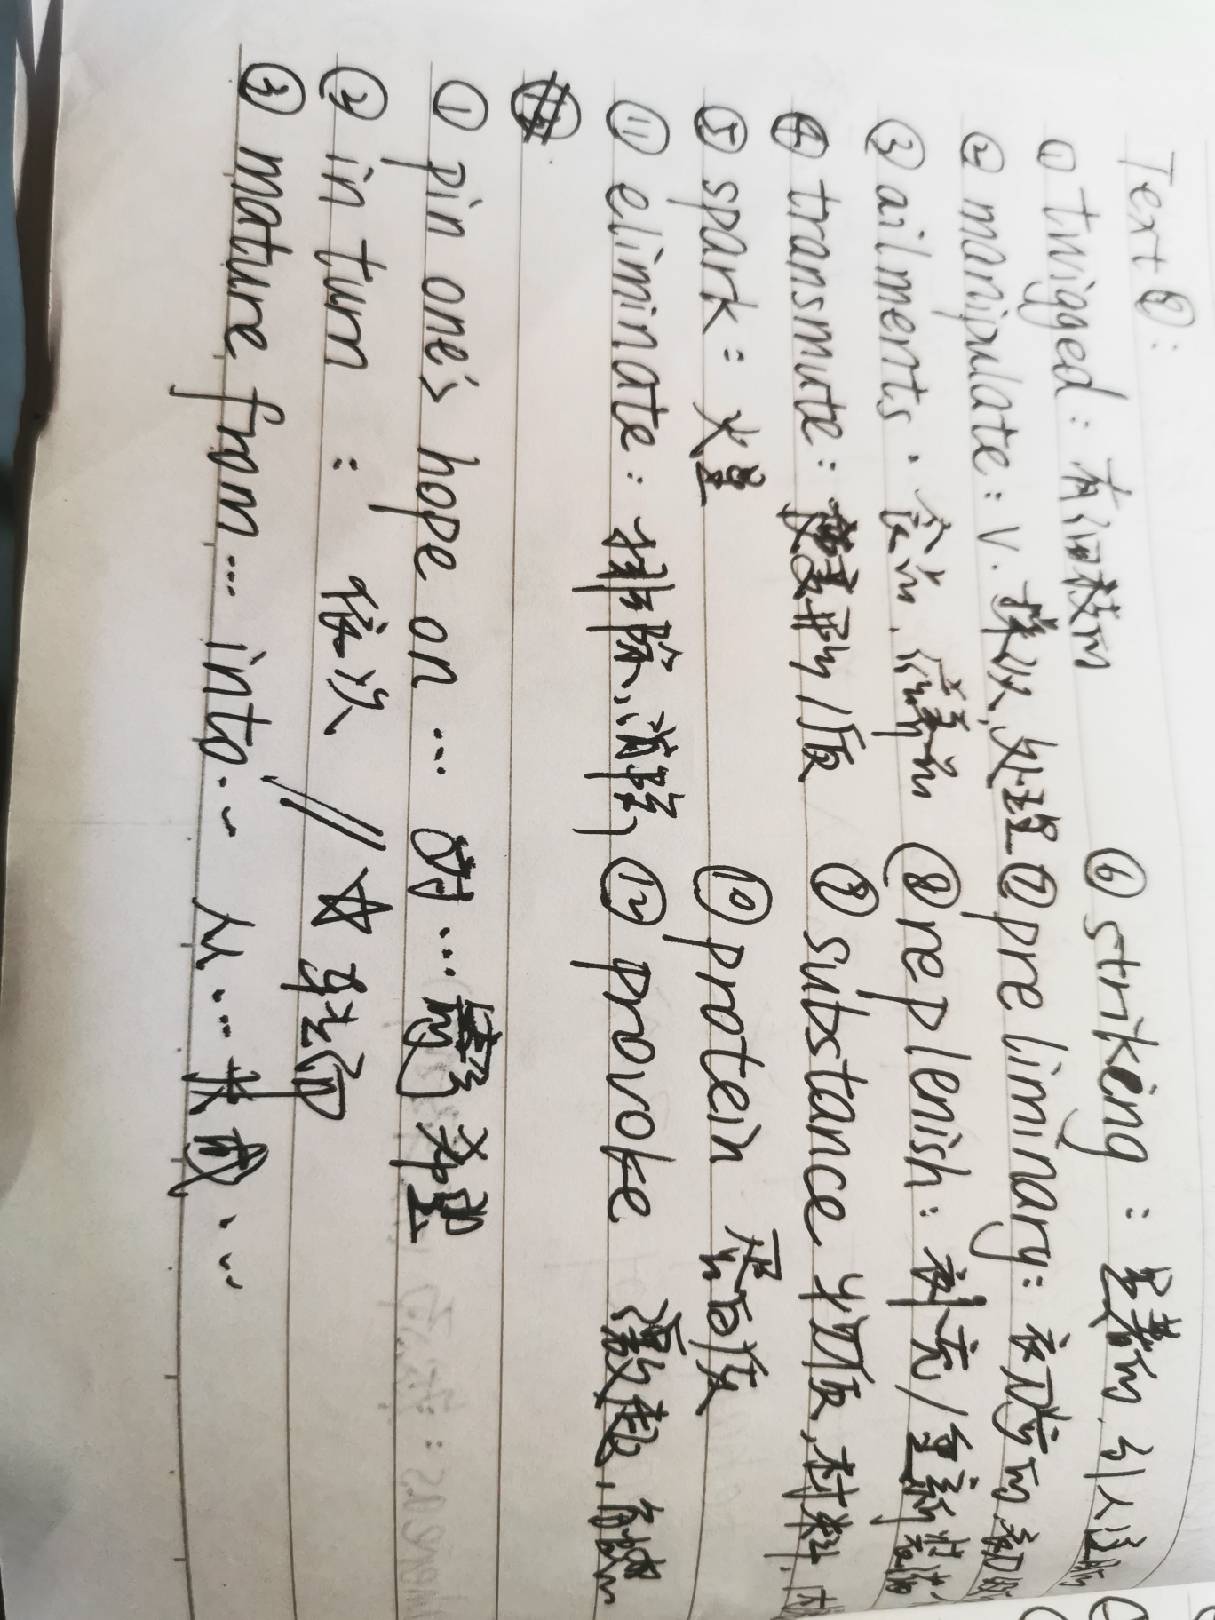 Text⑧:
① twigged: 有细枝的 ⑥ striking: 显著的, 引人注
② manipulate: v. 操纵,处理 ⑦ preliminary: 初
③ ailments. ⑧ replenish: 补充/重新装
④ transmute: 变形/质 ⑨ substance 物质,材料
⑤ spark: 火星 ⑩ protein 蛋白质
⑪ eliminate: 排除,消 ⑫ provoke 激起,
① pin one's hope on … 对…寄希望
② in turn : 依次 // ☆ 轮流
③ mature from … into… 从…